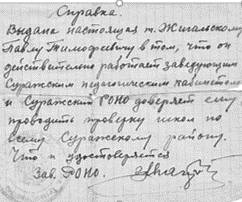 Справка.
Выдана настоящая т. Жигальскому
Павлу Тимофеевичу в том, что он
действительно работает заведующим
Суражским педагогическим кабинетом
и Суражский РОНО доверяет ему
проводить проверку школ по
всему Суражскому району.
Что и удостоверяется
Зав. РОНО.